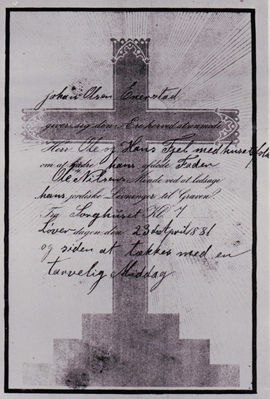 Johan Olsen Enerstad
giver sig den Ære herved at anmode
Herr Ole og Hans Fjet med huusfolk
om at gjøre hans afdøde Fader
Ole Nilsens Minde ved at ledsage
hans jordiske Levninger til Graven.
Fra Sørghuset Kl. 7
Løver dagen den 23de April 1881
og siden at takkes med en
tarvelig Middag